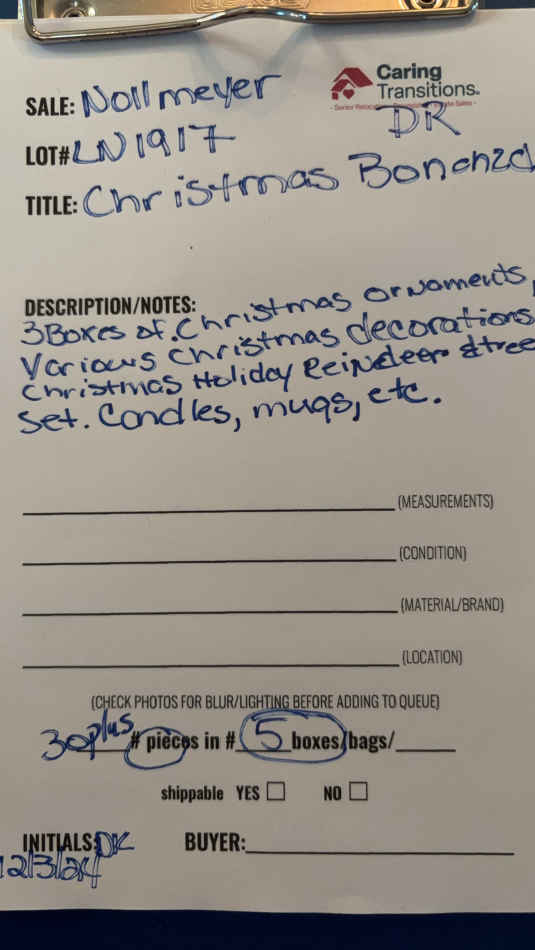 Caring
Transitions®
SALE: Nollmeyer
DR
LOT# LN1917
TITLE: Christmas Bonanza
DESCRIPTION/NOTES:
3 Boxes of Christmas ornaments,
Various Christmas decorations
Christmas Holiday Reindeer & tree
Set. Candles, mugs, etc.
(MEASUREMENTS)
(CONDITION)
(MATERIAL/BRAND)
(LOCATION)
(CHECK PHOTOS FOR BLUR/LIGHTING BEFORE ADDING TO QUEUE)
30 plus # pieces in # 5 boxes/bags/
shippable YES NO
INITIALS: DK BUYER:
12/3/24